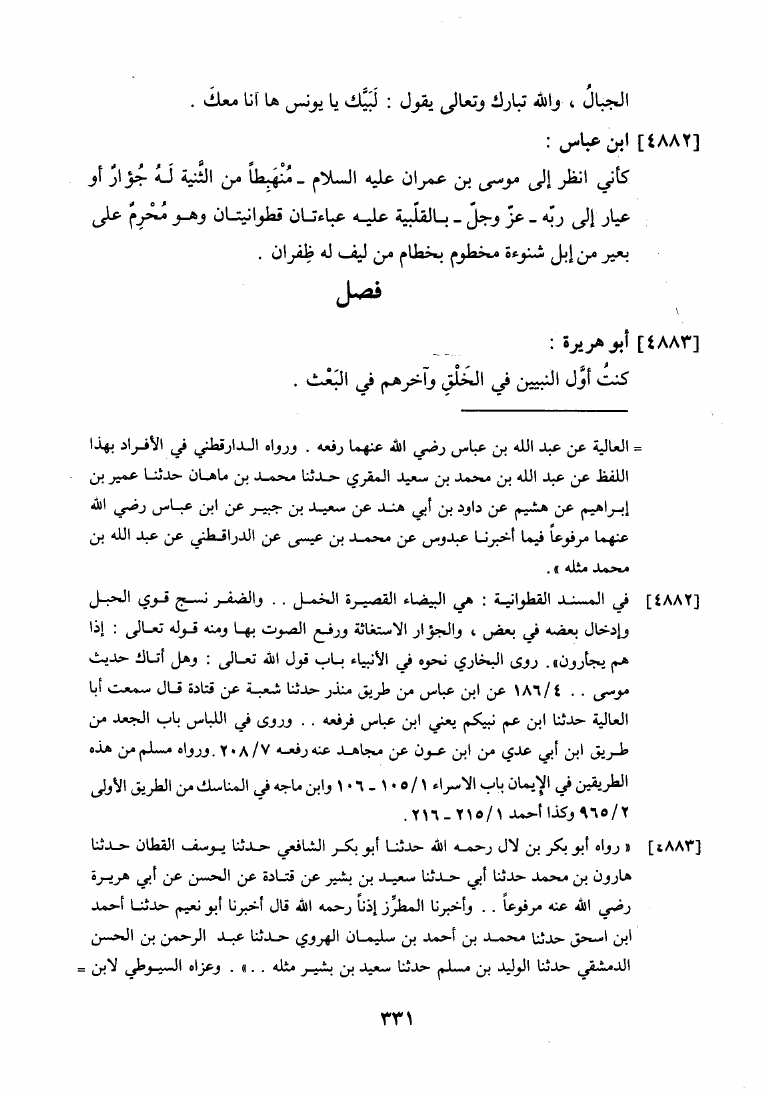 الجبالُ ، والله تبارك وتعالى يقول : لَبَيَّك يا يونس ها آنا معكَ .
[٤٨٨٢] ابن عباس :
كأني انظر إلى موسى بن عمران عليه السلام ـ مُنْهَبِطاً من الثَّنية لَهُ جُؤارٌ أو
عيار إلى ربّه ـ عزّ وجلّ ـ بالقلّبية عليه عباءتان قطوانيتان وهو مُحْرِمٌ على
بعير من إبل شنوءة مخطوم بخطام من ليف له ظِفران .
فصل
[٤٨٨٣] أبو هريرة :
كنتُ أوَّل النبيين في الخَلْقِ وآخرهم في البَعْث .
= العالية عن عبد الله بن عباس رضي الله عنهما رفعه . ورواه الدارقطني في الأفراد بهذا
اللفظ عن عبد الله بن محمد بن سعيد المقري حدثنا محمد بن ماهان حدثنا عمير بن
إبراهيم عن هشيم عن داود بن أبي هند عن سعيد بن جبير عن ابن عباس رضي الله
عنهما مرفوعاً فيما أخبرنا عبدوس عن محمد بن عيسى عن الدراقطني عن عبد الله بن
محمد مثله ».
[٤٨٨٢] في المسند القطوانية : هي البيضاء القصيرة الخمل . . والضفر نسج قوي الحبل
وإدخال بعضه في بعض ، والجؤار الاستغاثة ورفع الصوت بها ومنه قوله تعالى : إذا
هم يجأرون». روى البخاري نحوه في الأنبياء باب قول الله تعالى : وهل أتاك حديث
موسى . . ١٨٦/٤ عن ابن عباس من طريق منذر حدثنا شعبة عن قتادة قال سمعت أبا
العالية حدثنا ابن عم نبيكم يعني ابن عباس فرفعه . . وروى في اللباس باب الجعد من
طريق ابن أبي عدي من ابن عون عن مجاهد عنه رفعه ٢٠٨/٧ .ورواه مسلم من هذه
الطريقين في الإيمان باب الاسراء ١٠٥/١ ـ ١٠٦ وابن ماجه في المناسك من الطريق الأولى
٩٦٥/٢ وكذا أحمد ٢١٥/١ ـ ٢١٦.
[٤٨٨٣] « رواه أبو بكر بن لال رحمه الله حدثنا أبو بكر الشافعي حدثنا يوسف القطان حدثنا
هارون بن محمد حدثنا أبي حدثنا سعيد بن بشير عن قتادة عن الحسن عن أبي هريرة
رضي الله عنه مرفوعاً . . وأخبرنا المطرِّز إذناً رحمه الله قال أخبرنا أبو نعيم حدثنا أحمد
ابن اسحق حدثنا محمد بن أحمد بن سليمان الهروي حدثنا عبد الرحمن بن الحسن
الدمشقي حدثنا الوليد بن مسلم حدثنا سعيد بن بشير مثله . . ». وعزاه السيوطي لابن =
٣٣١